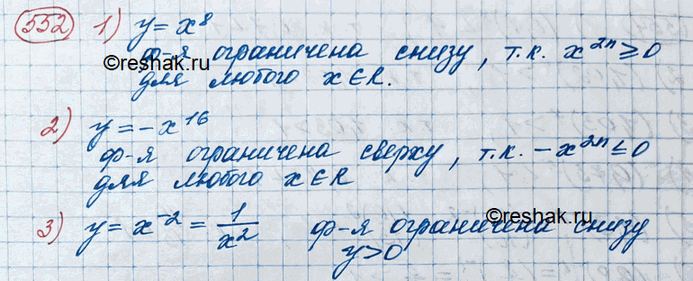 552 1) y = x⁸
ф-я ограничена снизу, т.к. x²ⁿ ≥ 0
©reshak.ru
для любого x ∈ R.
2) y = -x¹⁶
ф-я ограничена сверху, т.к. -x²ⁿ ≤ 0
для любого x ∈ R
©reshak.ru
3) y = x⁻² = 1/x² ф-я ограничена снизу
y > 0